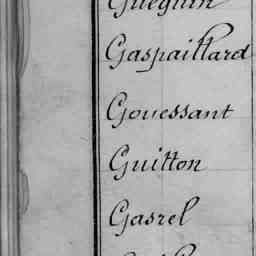 Gueguin
Gaspaillard
Gouessant
Guitton
Gasrel